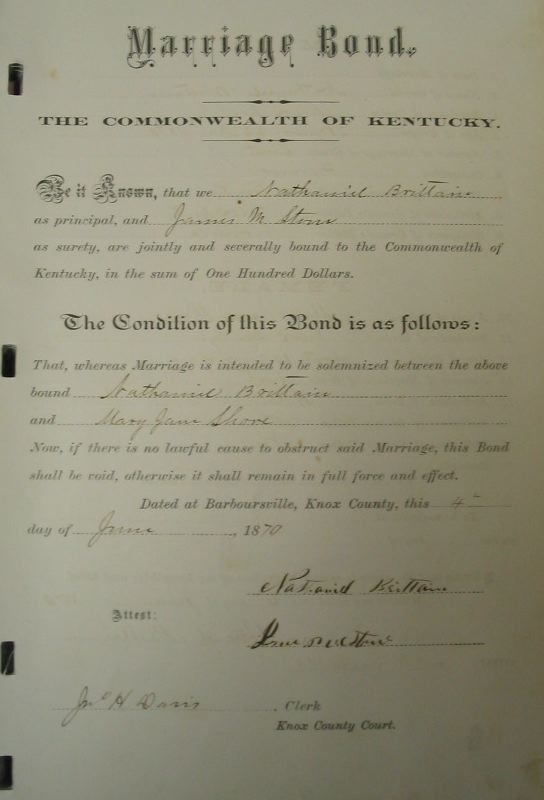 Marriage Bond.
THE COMMONWEALTH OF KENTUCKY.
Be it Known, that we Nathaniel Brittain
as principal, and James M Stone
as surety, are jointly and severally bound to the Commonwealth of
Kentucky, in the sum of One Hundred Dollars.
The Condition of this Bond is as follows:
That, whereas Marriage is intended to be solemnized between the above
bound Nathaniel Brittain
and Mary Jane Shore
Now, if there is no lawful cause to obstruct said Marriage, this Bond
shall be void, otherwise it shall remain in full force and effect.
Dated at Barboursville, Knox County, this 4th
day of June, 1870
Nathaniel Brittain
Attest:
Jno H Davis. Clerk
Knox County Court.